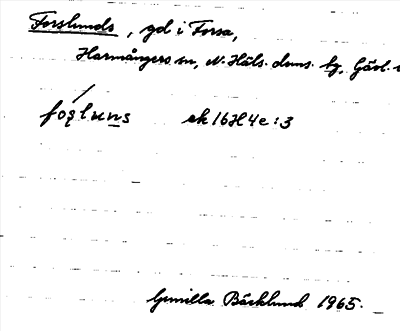 Forslunds, gd i Forsa,
Harmångers sn, N. Häls. doms. bg, Gävl.
foʂluns ek 16H4e:3
Gunilla Bäcklund 1965.